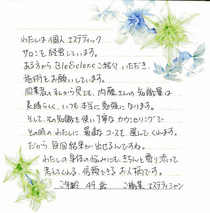 わたしは個人エステティック
サロンを経営しています。
あるちから Ble Selene ご紹介いただき、
施術をお願いしています。
同業者の私から見ても、内藤さんの知識量は
素晴らしく、いつも本当に勉強になります。
そして、その知識を使い丁寧なカウンセリングで
その時のわたしに最適なコースを選んでくれます。
だから毎回結果が出るんですね。
わたしの身体の悩みにも、きちんと寄り添って
考えてくれる、信頼できるお人柄です。
ご年齢 49歳 ご職業 エステティシャン